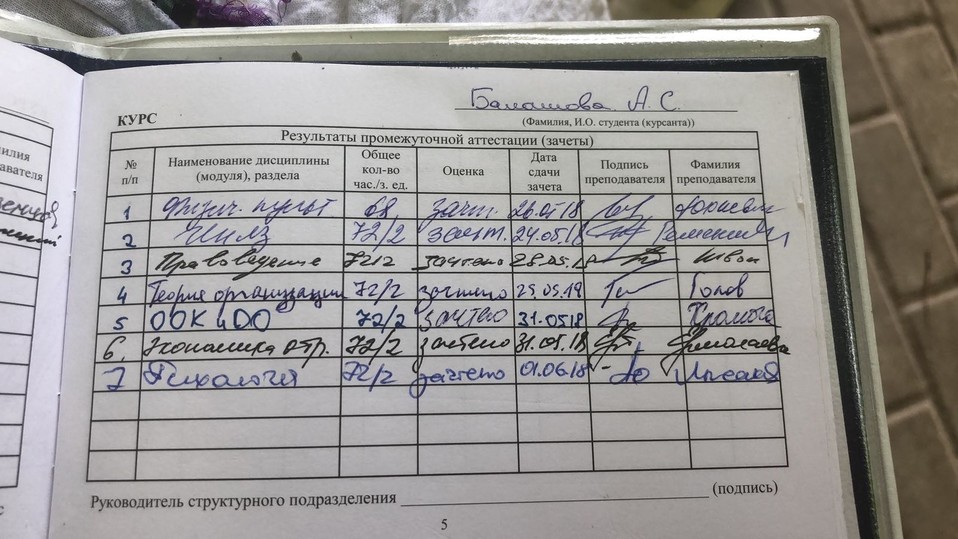 Балашова А. С.
КУРС
(Фамилия, И.О. студента (курсанта))
Результаты промежуточной аттестации (зачеты)
№ п/п Наименование дисциплины (модуля), раздела Общее кол-во час./з. ед. Оценка Дата сдачи зачета Подпись преподавателя Фамилия преподавателя
1 Физич. культ 68 зачт. 18
2 72/2 зачт. 24.05.18
3 Правоведение 72/2 зачтено 28.05.18
4 Теория организации 72/2 зачтено Голов
5 72/2 зачтено 31.0518
6. Экономика отр. 72/2 зачтено 31.05.18
7 Психология 72/2 зачтено 01.06.18
Руководитель структурного подразделения (подпись)
5